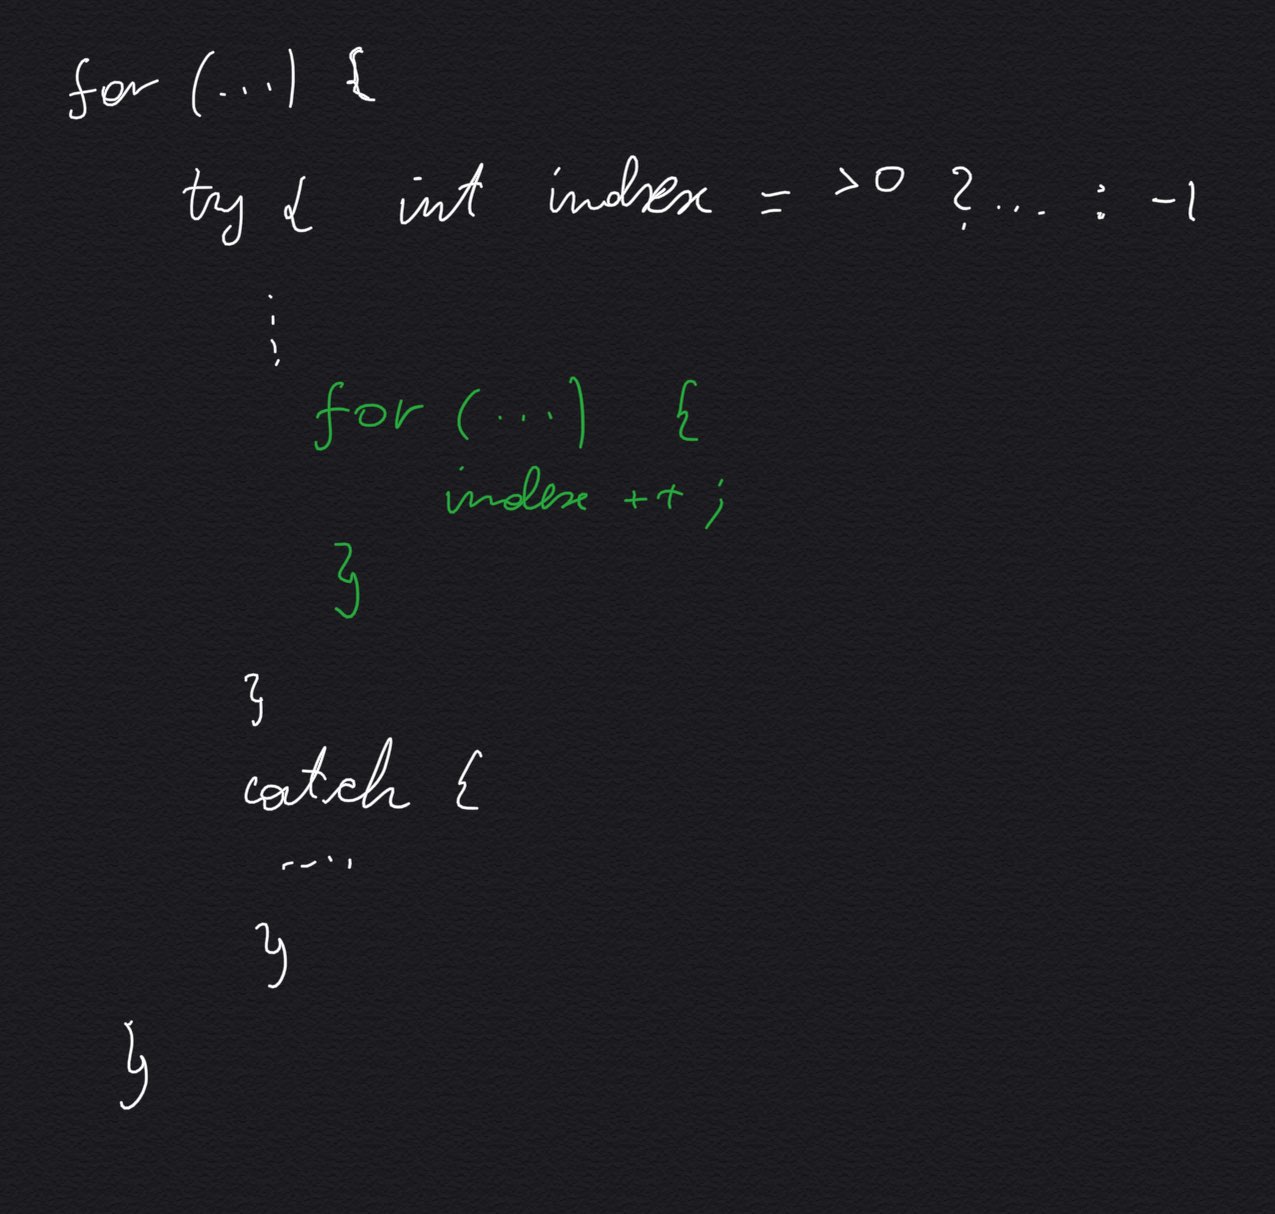 for (...) {
try { int index = >0 ? ... : -1
⋮
for (...) {
index ++ ;
}
}
catch {
....
}
}